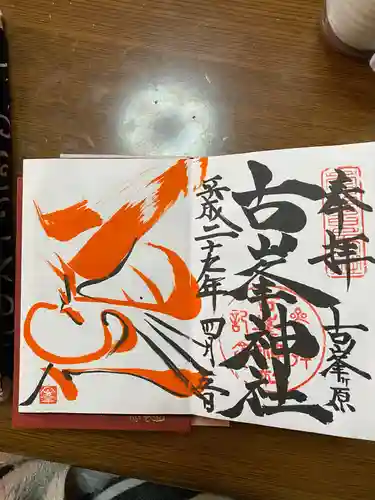 奉拝
古峯ヶ原
古峯神社
平成二十九年四月